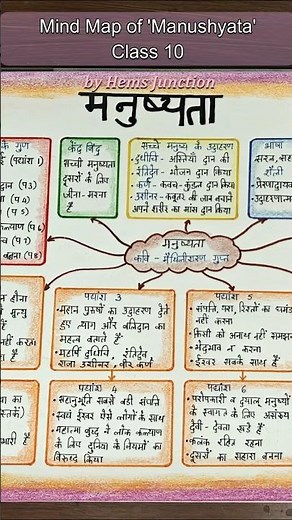 Mind Map of 'Manushyata'
Class 10
by Hems Junction
मनुष्यता
के गुण
(पद्यांश 1)
दान (प3)
(प 4)
(प 5)
(प 6)
(प 7)
(प 8)
केंद्र बिंदु
सच्ची मनुष्यता
दूसरों के लिए
जीना - मरना
है
सच्चे मनुष्य के उदाहरण
• दधीचि - अस्थियाँ दान की
• रंतिदेव - भोजन दान किया
• कर्ण - कवच - कुंडल दान किया
• उशीनर - कबूतर की जान बचाने
अपने शरीर का मांस दान किया
भाषा
सरल, सह
शैली
• प्रेरणादायक
• उदाहरणात्म
मनुष्यता
कवि - मैथिलीशरण गुप्त
होना
मृत्यु
है
नहीं करता
है
पद्यांश 3
• महान पुरुषों का उदाहरण देते
हुए त्याग और बलिदान का
महत्व बताते हैं
• महर्षि दधिचि, रंतिदेव,
राजा उशीनर, वीर कर्ण
पद्यांश 5
• संपत्ति, यश, रिश्तों का घमंड
नहीं करना
• किसी को अनाथ नहीं समझना
• भेदभाव न करना
• ईश्वर सबके साथ हैं
का
भारी है
पद्यांश 4
• सहानुभूति सबसे बड़ी संपत्ति
• स्वयं ईश्वर ऐसे लोगों के साथ
• महात्मा बुद्ध ने लोक कल्याण
के लिए दुनिया के नियमों का
विरुद्ध किया
पद्यांश 6
• परोपकारी व दयालु मनुष्यों
के स्वागत के लिए असंख्य
देवी - देवता खड़े हैं
• कलंक रहित रहना
• दूसरों का सहारा बनना